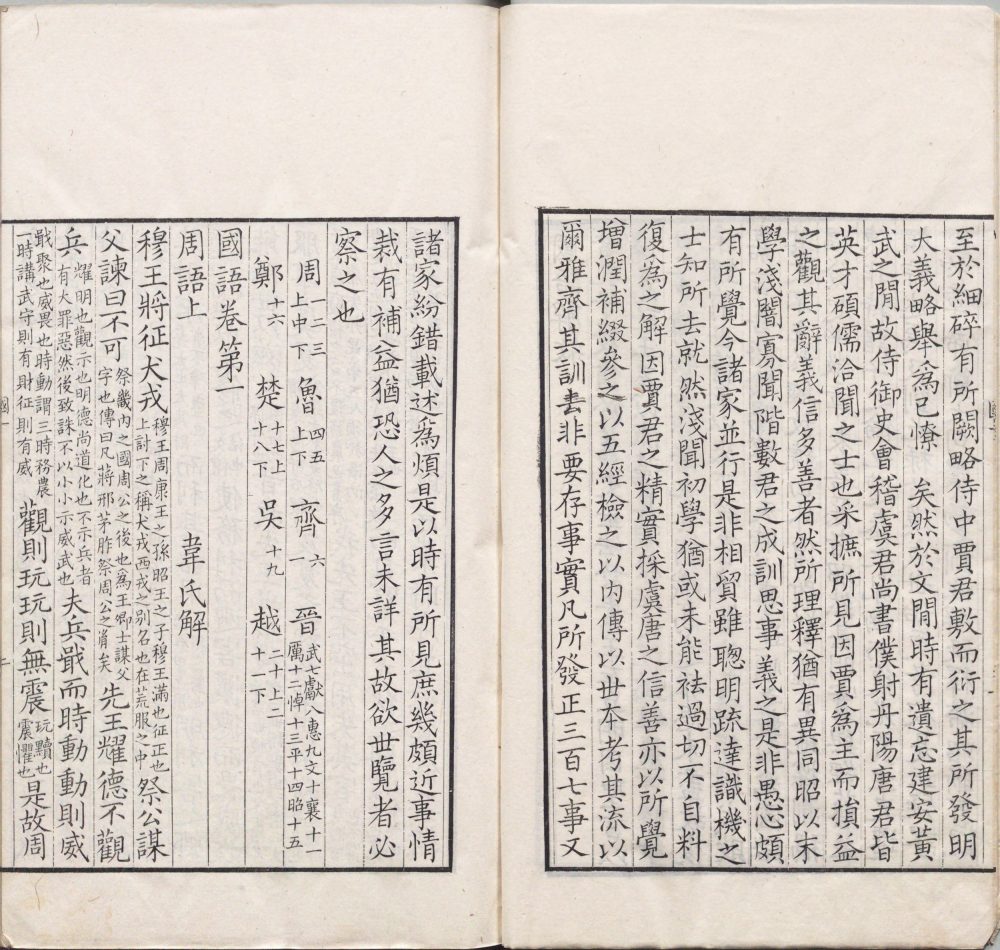 至於細碎有所闕略侍中賈君敷而衍之其所發明
大義略舉爲已憭　矣然於文閒時有遺忘建安黃
武之閒故侍御史會稽虞君尚書僕射丹陽唐君皆
英才碩儒洽聞之士也采摭所見因賈爲主而損益
之觀其辭義信多善者然所理釋猶有異同昭以末
學淺闇寡聞階數君之成訓思事義之是非愚心頗
有所覺今諸家並行是非相貿雖聰明疏達識機之
士知所去就然淺聞初學猶或未能祛過切不自料
復爲之解因賈君之精實採虞唐之信善亦以所覺
增潤補綴參之以五經檢之以內傳以世本考其流以
爾雅齊其訓去非要存事實凡所發正三百七事又
諸家紛錯載述爲煩是以時有所見庶幾頗近事情
裁有補益猶恐人之多言未詳其故欲世覽者必
察之也
周一二三上中下　魯四五上下　齊六一　晉武七獻八惠九文十襄十一厲十二悼十三平十四昭十五
鄭十六　楚十七上十八下　吳十九　越二十上二十一下
國語卷第一
周語上　韋氏解
穆王將征犬戎穆王周康王之孫昭王之子穆王滿也征正也上討下之稱犬戎西戎之別名也在荒服之中祭公謀
父諫曰不可祭畿內之國周公之後也爲王卿士謀父字也傳曰凡蔣邢茅胙祭周公之胤矣先王耀德不觀
兵耀明也觀示也明德尚道化也不示兵者有大罪惡然後致誅不以小小示威武也夫兵戢而時動動則威
戢聚也威畏也時動謂三時務農一時講武守則有財征則有威觀則玩玩則無震玩黷也震懼也是故周